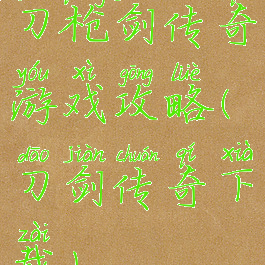 刀枪剑传奇
yóu xì gōng lüè
游戏攻略(
dāo jiàn chuán qí xià
刀剑传奇下
zǎi
载)